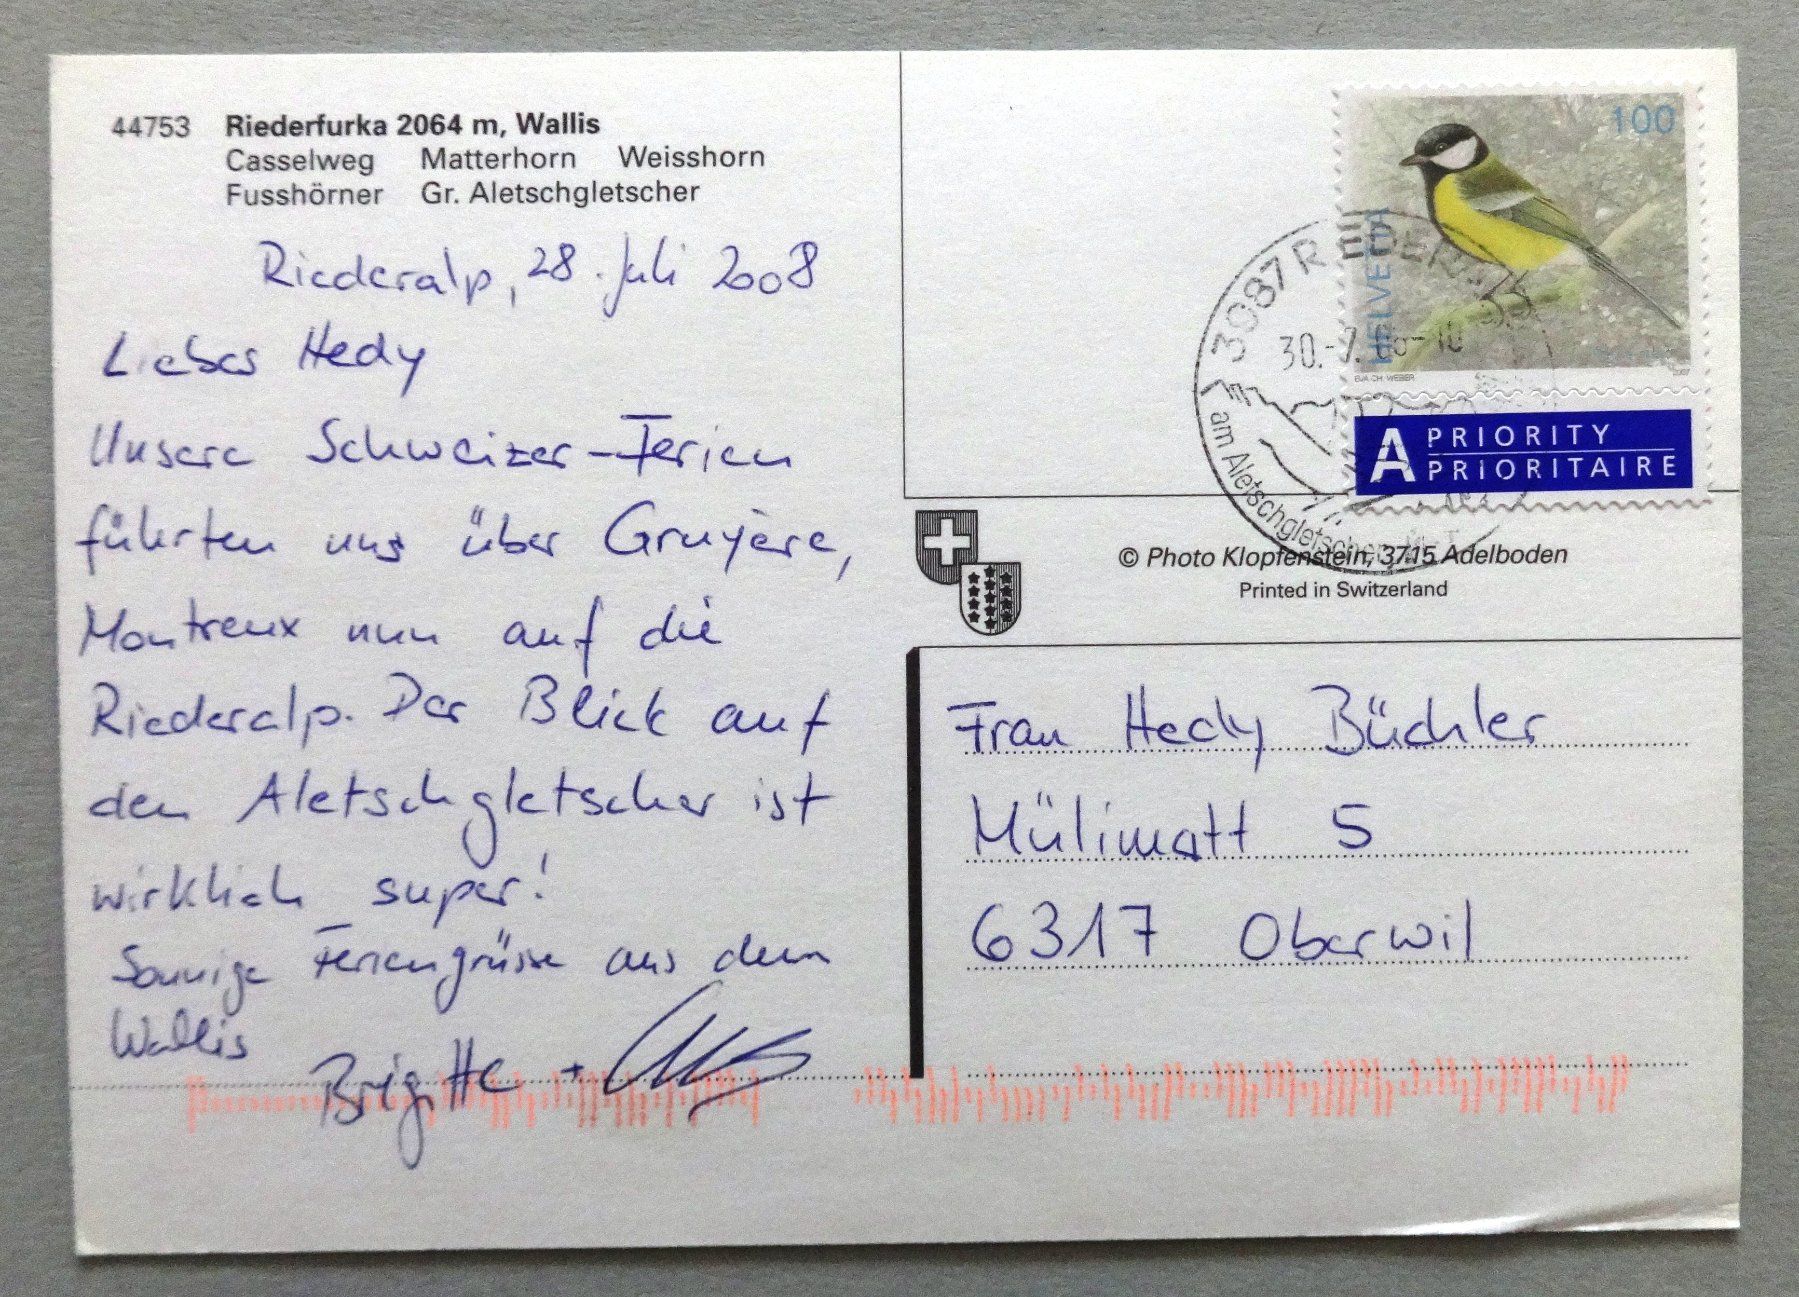 44753 Riederfurka 2064 m, Wallis
Casselweg Matterhorn Weisshorn
Fusshörner Gr. Aletschgletscher
Riederalp, 28. Juli 2008
Liebes Hedy
Unsere Schweizer-Ferien
führten uns über Gruyère,
Montreux nun auf die
Riederalp. Der Blick auf
den Aletschgletscher ist
wirklich super!
Sonnige Feriengrüsse aus dem
Wallis
Brigitte +
100
HELVETIA
EVA CH. WEBER
2007
3987 RIEDERALP
30.-7.08-10
am Aletschgletscher
A PRIORITY
PRIORITAIRE
© Photo Klopfenstein, 3715 Adelboden
Printed in Switzerland
Frau Hedy Büchler
Mülimatt 5
6317 Oberwil